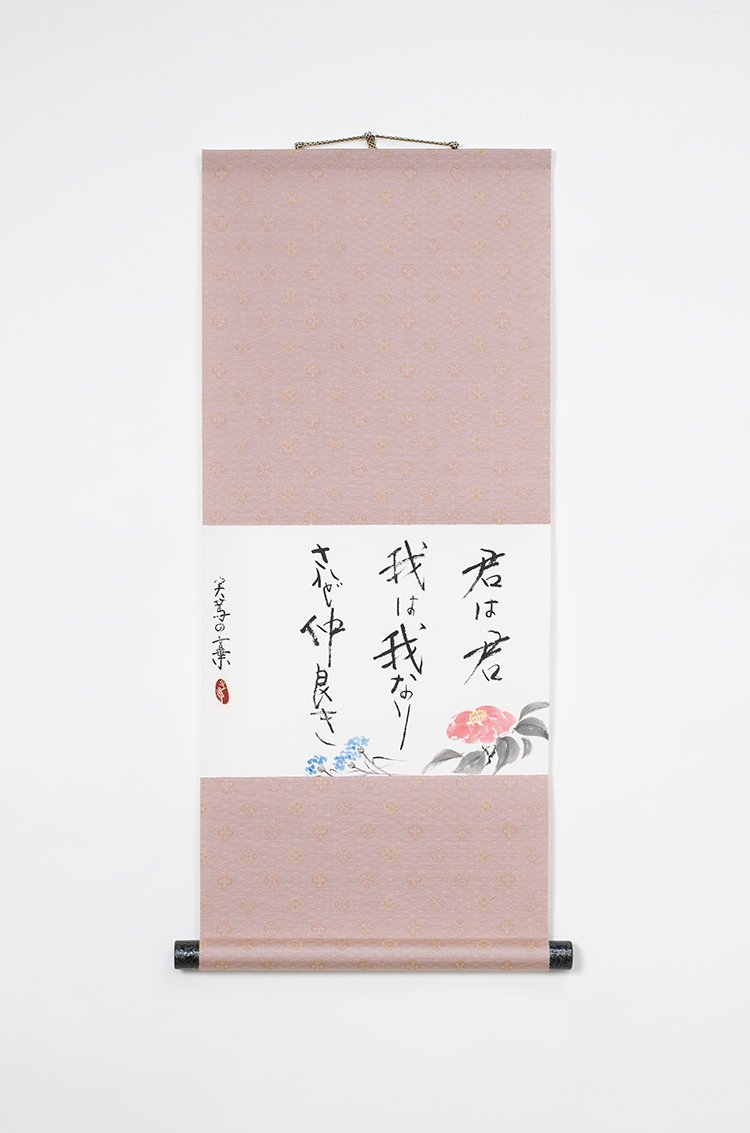 君は君
我は我なり
されど仲良き
実篤の言葉